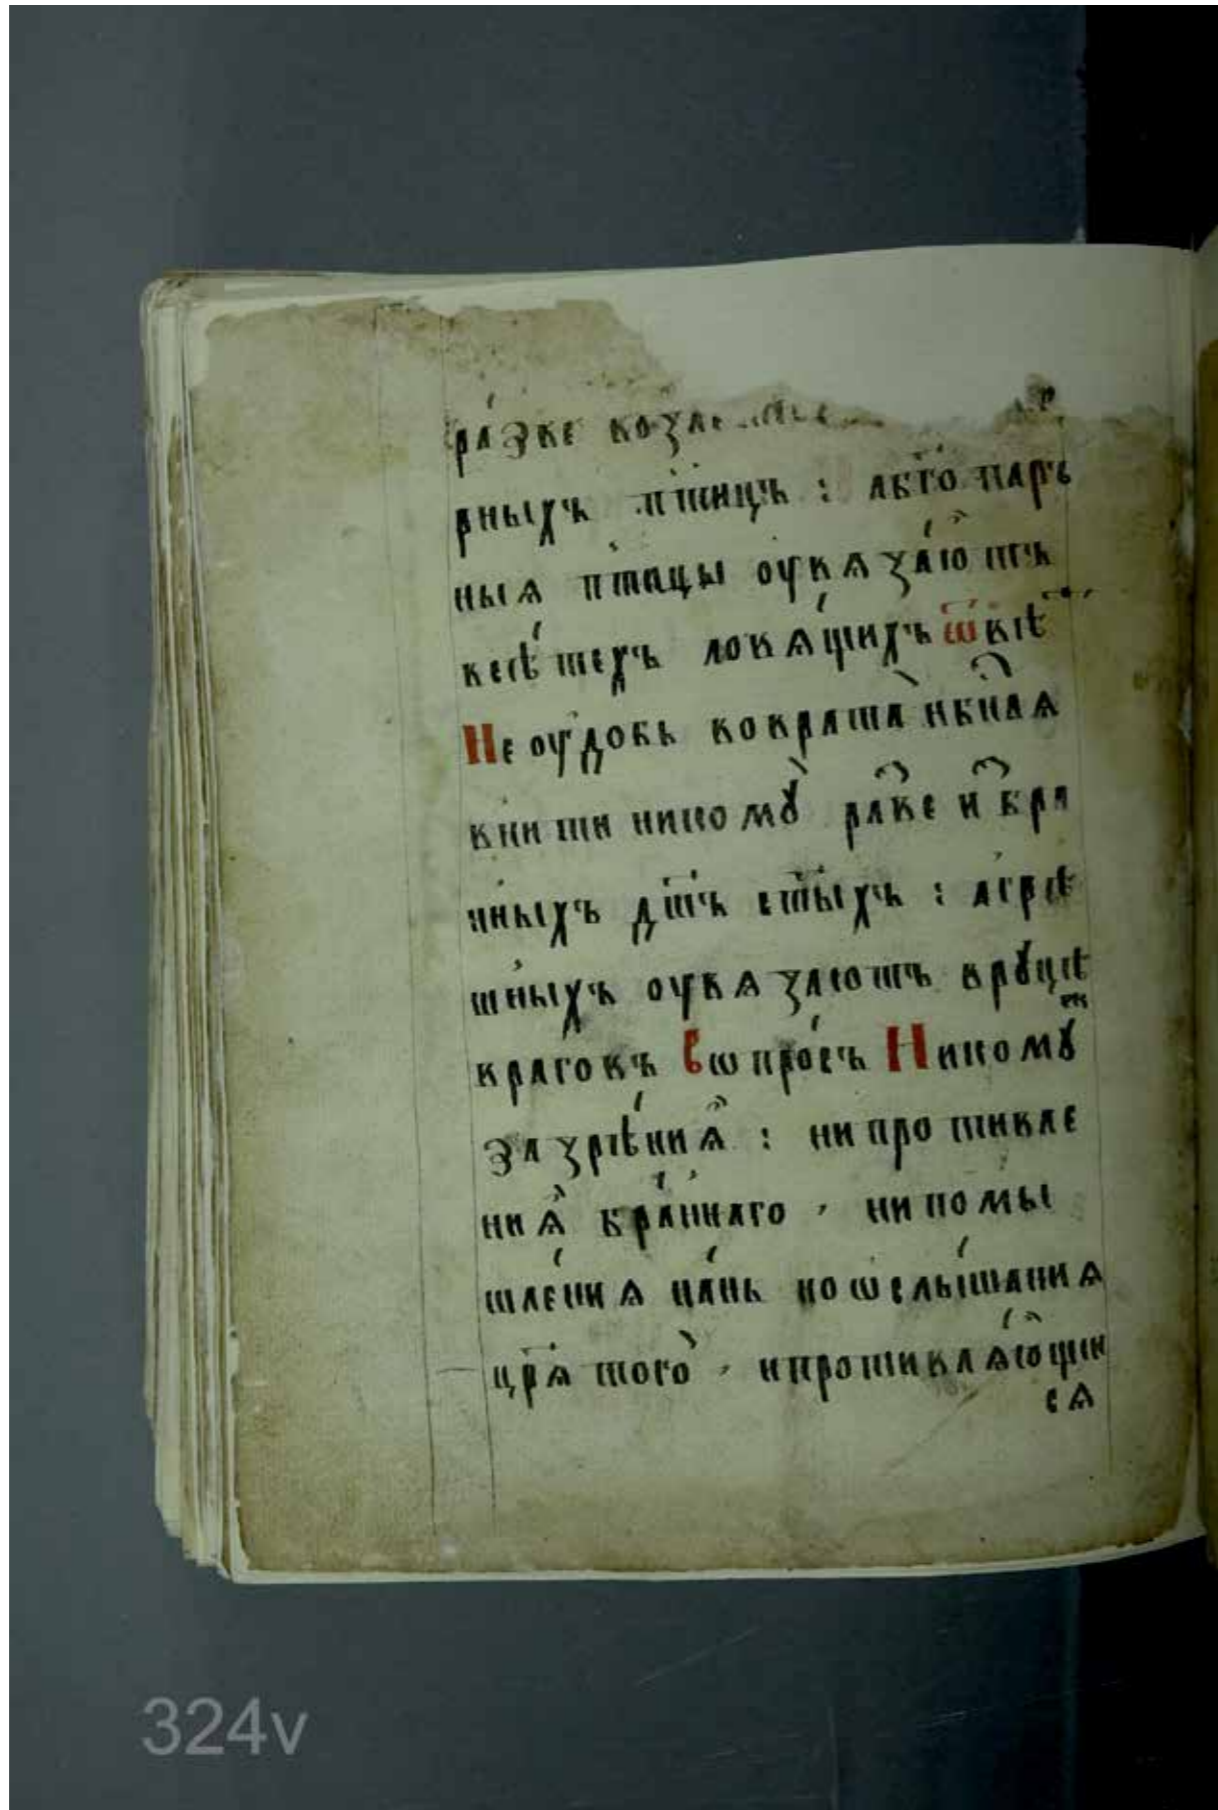 рныхъ птицъ : абїо парь
ныѧ птицы оувѧзаютъ
всѣтехъ ловѧщихъ ѿвсѣ
Неоудобь вократа нбнаѧ
внити никомꙋ раве избра
нныхъ дш҃ъ ст҃ыхъ : агрѣ
шныхъ оувѧзаютъврꙋцѣ
враговъ Вѡпросъ Никомꙋ
зазрѣниѧ : нипротивле
ниѧ браннаго , нипомы
шлениѧ нань ноѡслышаниѧ
цр҃ѧ того , ипротивлѧющи
сѧ
324v